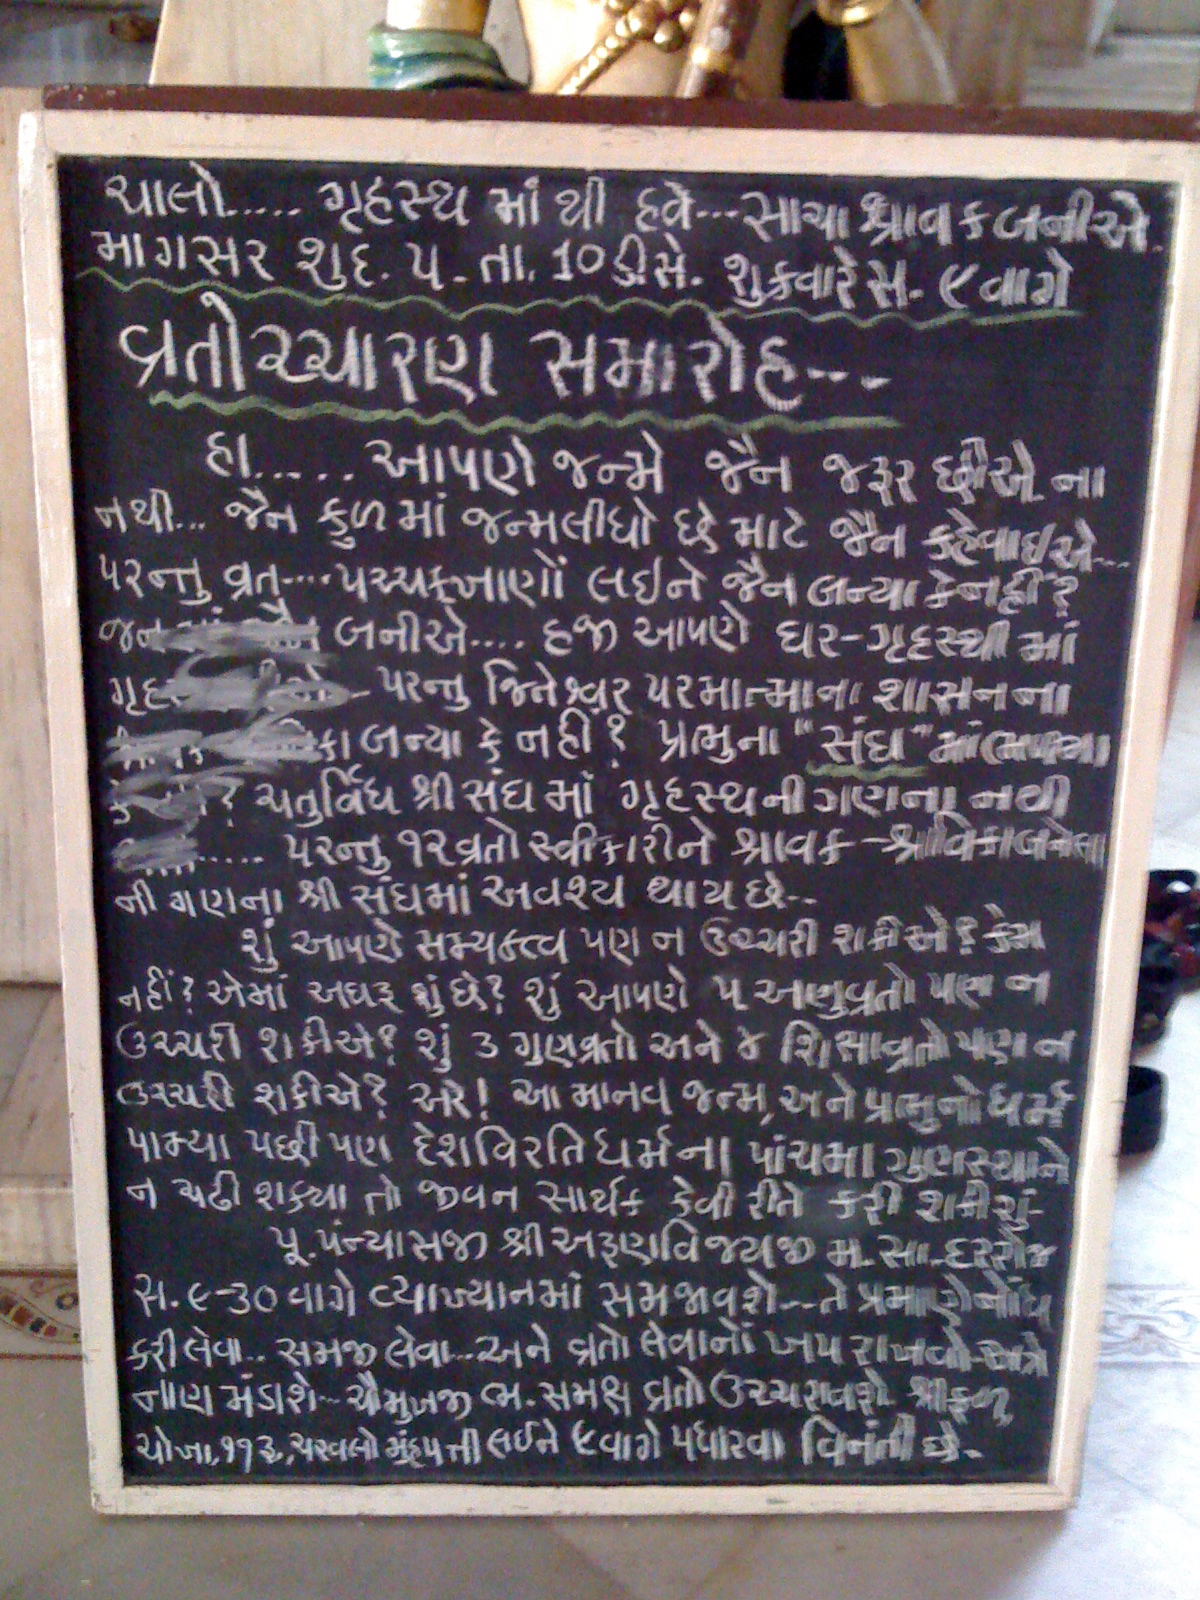 ચાલો..... ગૃહસ્થ માં થી હવે... સાચા શ્રાવક બનીએ.
માગસર શુદ. ૫. તા. 10 ડીસે. શુક્રવારે સ. ૯ વાગે
વ્રતોચ્ચારણ સમારોહ---
હા...... આપણે જન્મે જૈન જરૂર છીએ ના
નથી... જૈન કુળ માં જન્મ લીધો છે માટે જૈન કહેવાઇએ...
પરન્તુ વ્રત.... પચ્ચક્ખાણોં લઇને જૈન બન્યા કે નહીં?
જૈન બનીએ.... હજી આપણે ઘર-ગૃહસ્થી માં
પરન્તુ જિનેશ્વર પરમાત્માના શાસન ના
બન્યા કે નહીં? પ્રભુના "સંઘ" માં
? ચતુર્વિધ શ્રી સંઘ માં ગૃહસ્થ ની ગણના નથી
..... પરન્તુ ૧૨ વ્રતો સ્વીકારીને શ્રાવક-શ્રાવિકા બનેલા
ની ગણના શ્રી સંઘમાં અવશ્ય થાય છે--
શું આપણે સમ્યક્ત્વ પણ ન ઉચ્ચરી શકીએ? કેમ
નહીં? એમાં અઘરૂ શું છે? શું આપણે ૫ અણુવ્રતો પણ ન
ઉચ્ચરી શકીએ? શું 3 ગુણવ્રતો અને ૪ શિક્ષાવ્રતો પણ ન
ઉચ્ચરી શકીએ? અરે! આ માનવ જન્મ, અને પ્રભુનો ધર્મ
પામ્યા પછી પણ દેશવિરતિ ધર્મ ના પાંચમા ગુણસ્થાને
ન ચઢી શક્યા તો જીવન સાર્થક કેવી રીતે કરી શકીશું-
પૂ. પંન્યાસજી શ્રી અરૂણવિજયજી મ. સા. દરરોજ
સ. ૯-30 વાગે વ્યાખ્યાનમાં સમજાવશે... તે પ્રમાણે નોંધ
કરી લેવા.. સમજી લેવા... અને વ્રતો લેવાનોં ખપ રાખવો. અત્રે
નાણ મંડાશે... ચૌમુખજી ભ. સમક્ષ વ્રતો ઉચ્ચરાવશે શ્રીફળ,
ચોખા, ૧૧રૂ., ચરવલો મુંહપત્તી લઈને ૯ વાગે પધારવા વિનંતી છે.